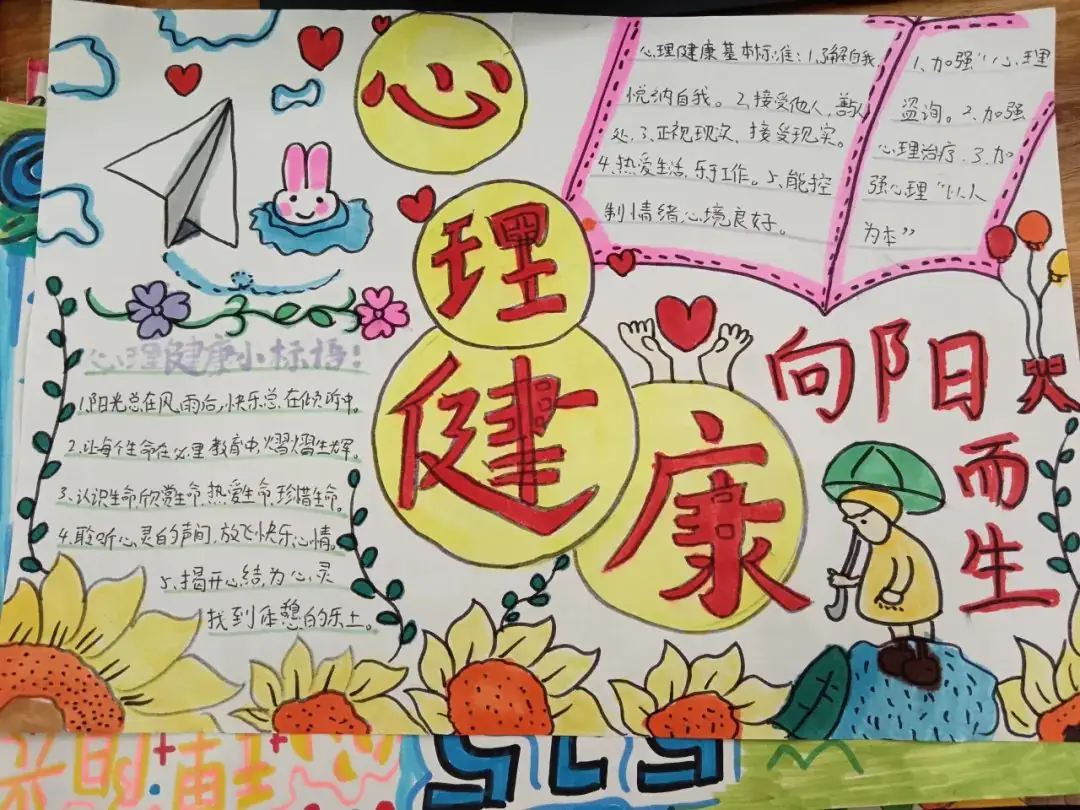 心
理
健
康
心理健康基本标准:1.了解自我,
悦纳自我。2.接受他人,善人
处、3.正视现实、接受现实。
4.热爱生活,乐于工作。5.能控
制情绪心境良好。
1.加强“心理
咨询。2.加强
心理治疗.3.加
强心理“以人
为本”
向阳
而
生
心理健康小标语!
1.阳光总在风雨后,快乐总在倾听中。
2.让每个生命在心里教育中,熠熠生辉。
3.认识生命,欣赏生命,热爱生命,珍惜生命。
4.聆听心灵的声间,放飞快乐心情。
5.揭开心结,为心灵
找到休憩的乐土。